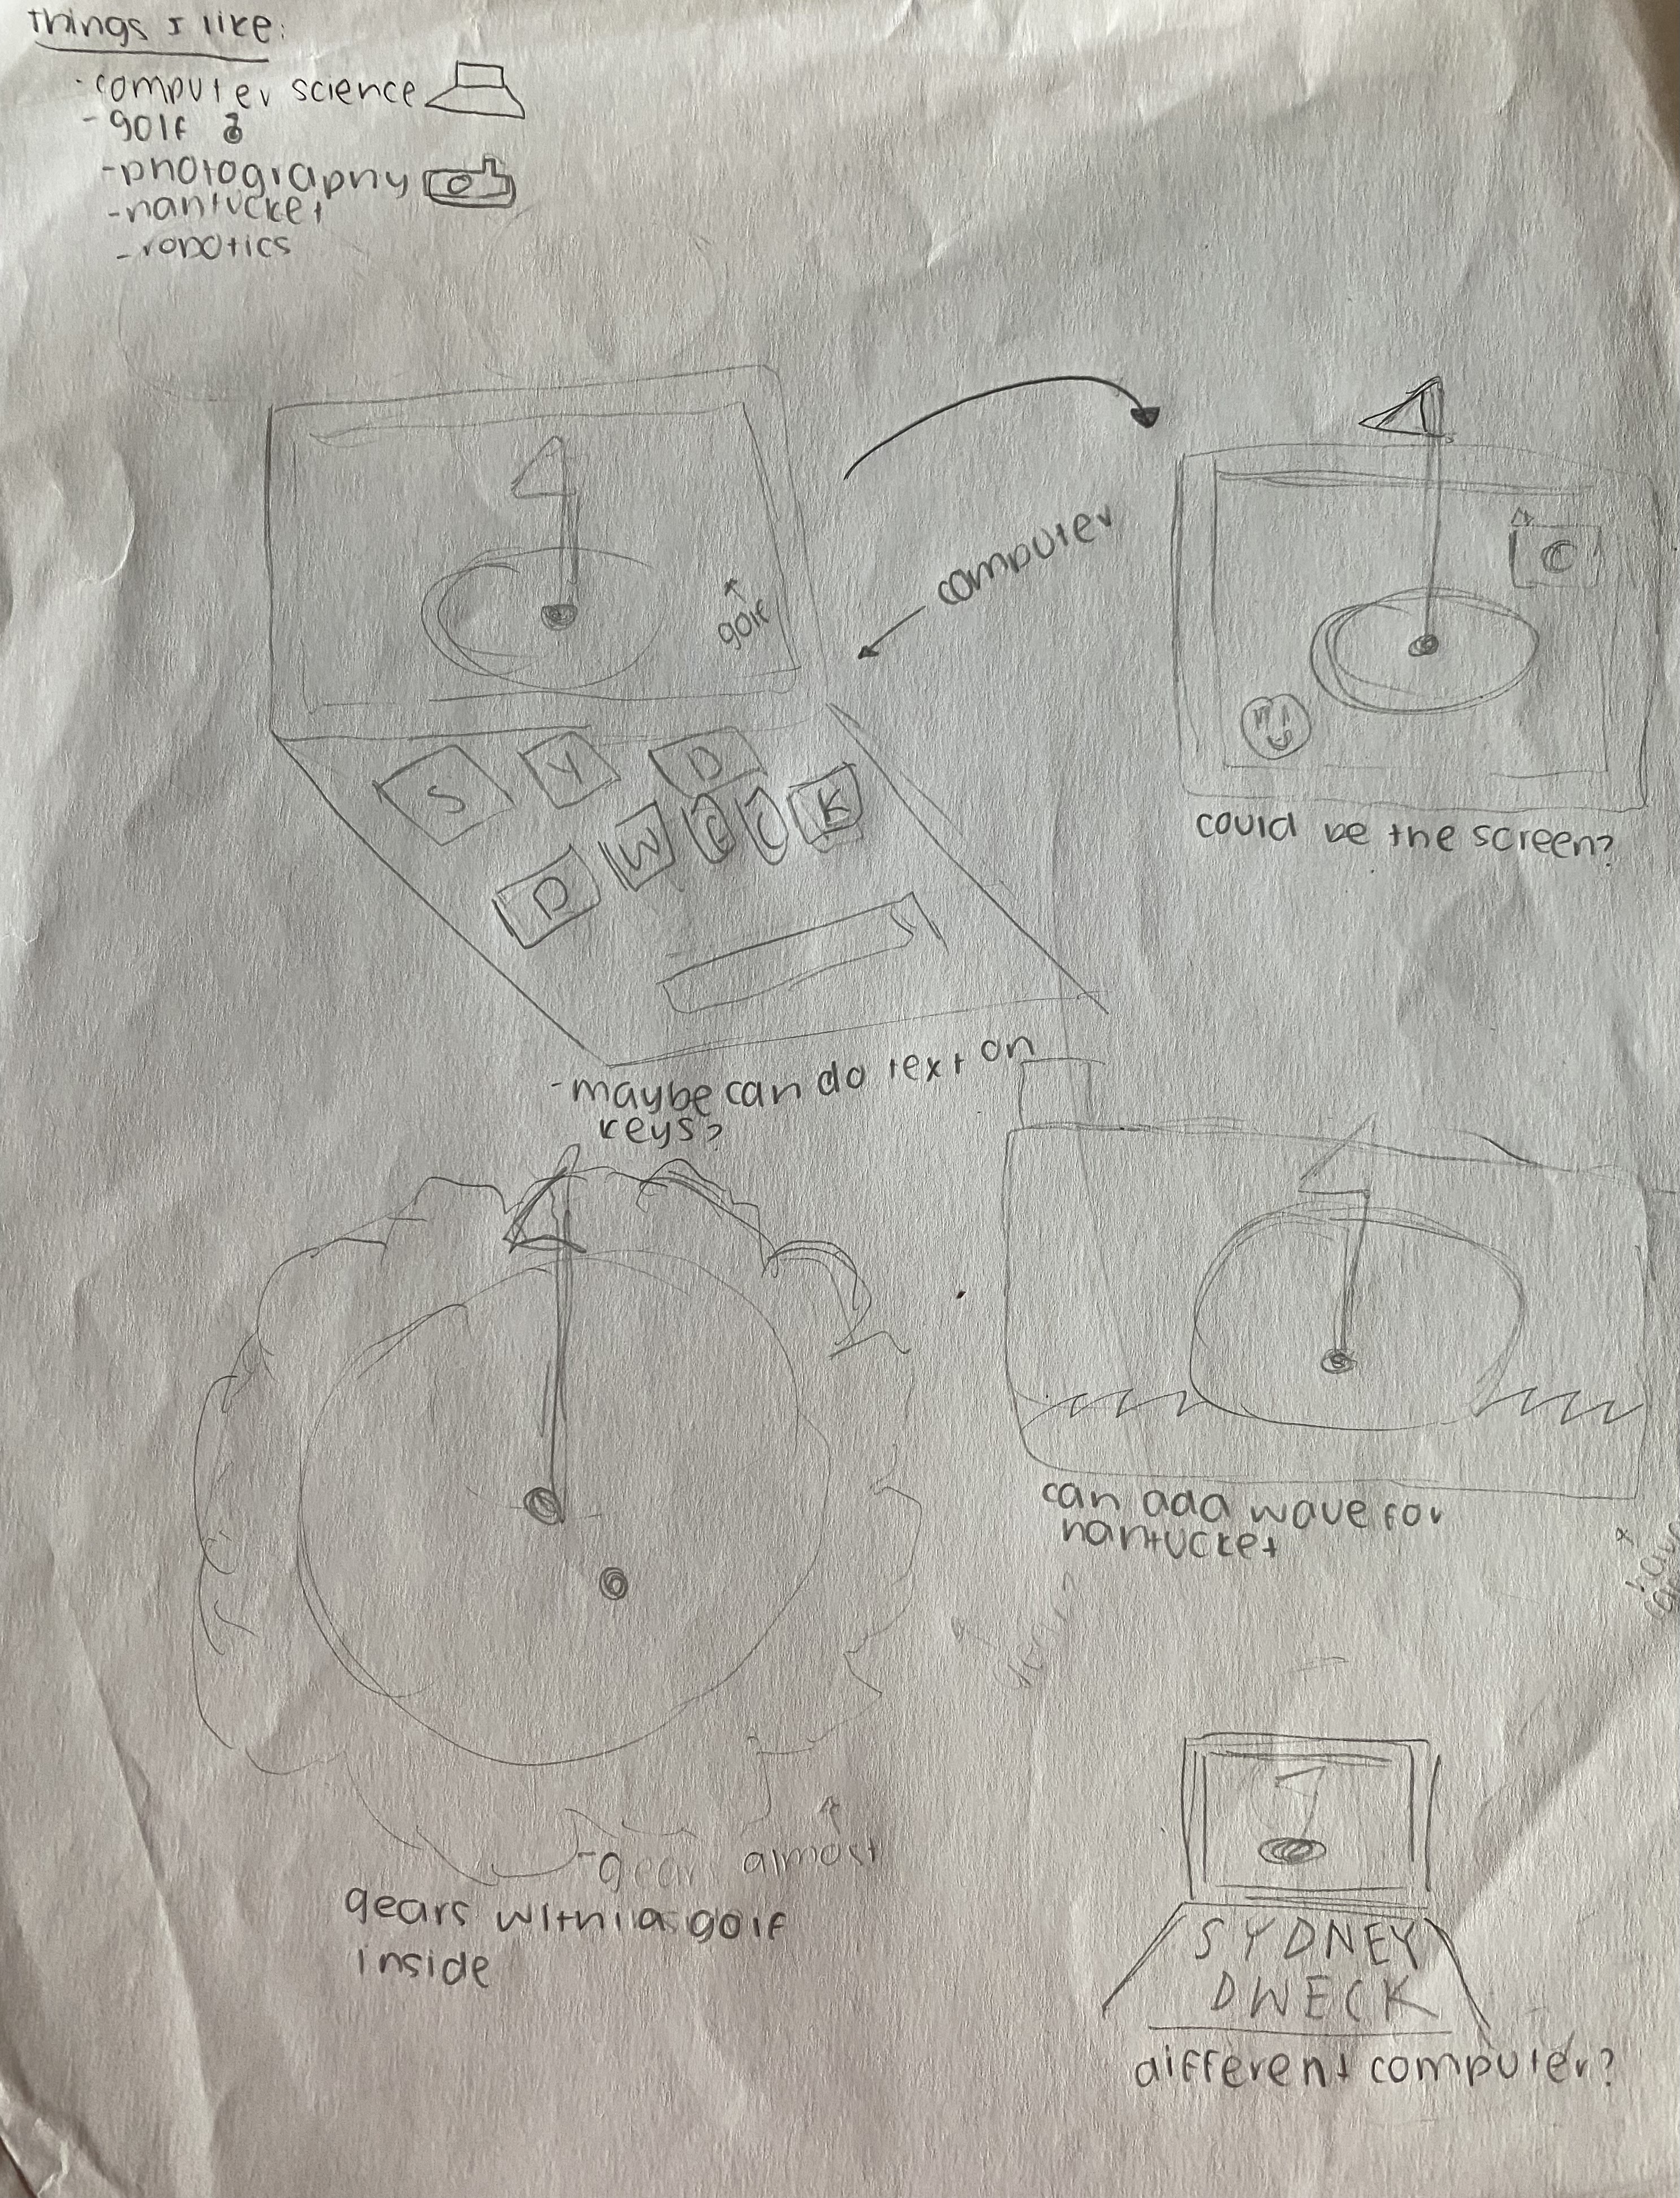 Things I like:
- computer science
- golf
- photography
- nantucket
- robotics
golf
computer
S Y D
D W E C K
could be the screen?
- maybe can do text on
keys?
can add wave for
nantucket
- gears almost
gears with a golf
inside
SYDNEY
DWECK
different computer?